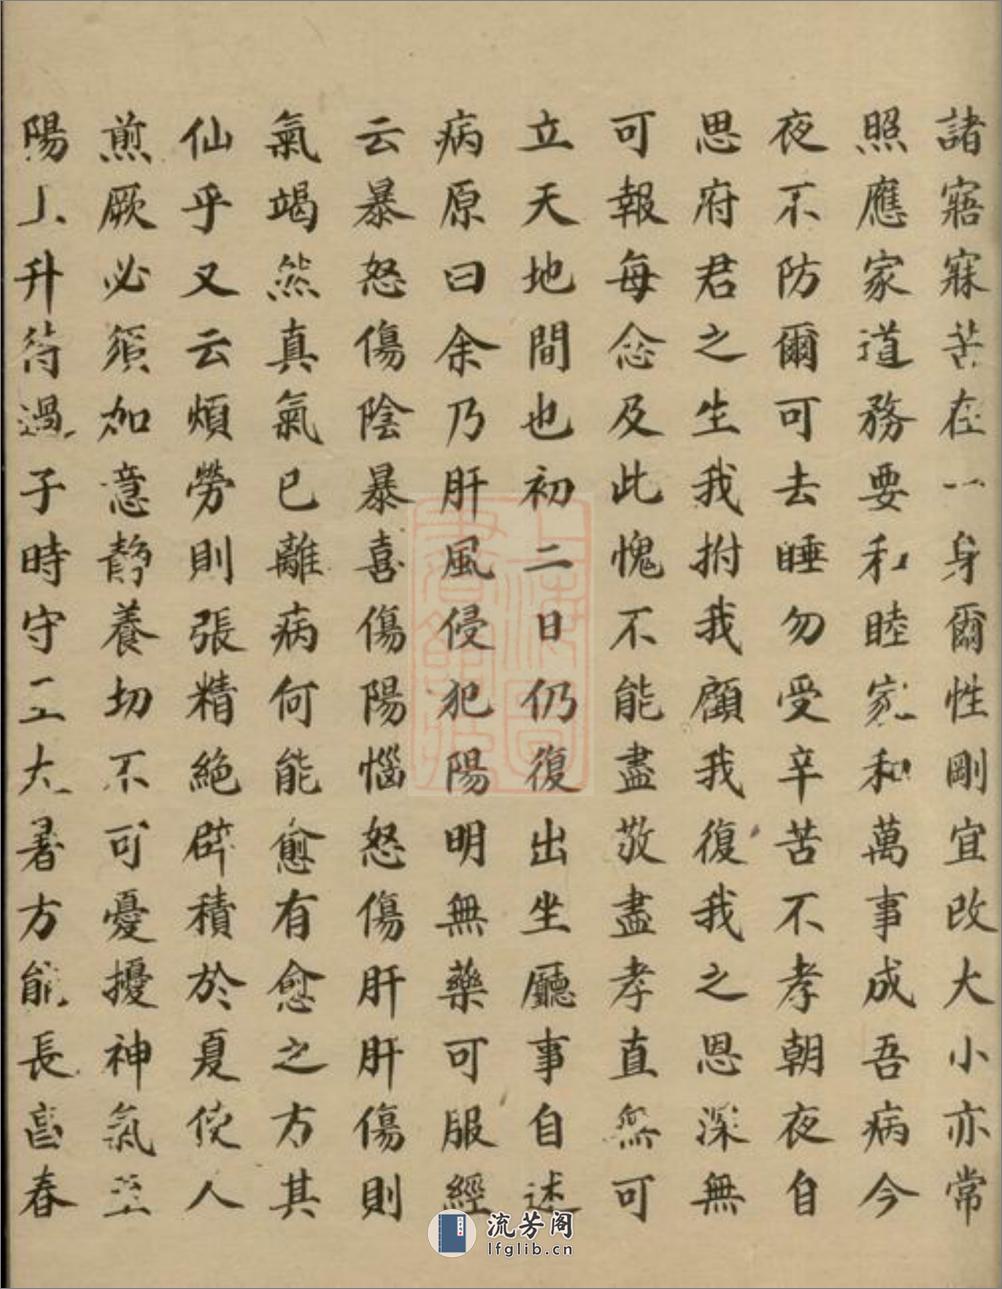 諸寤寐苦在一身爾性剛宜改大小亦常
照應家道務要和睦家和萬事成吾病今
夜不防爾可去睡勿受辛苦不孝朝夜自
思府君之生我拊我顧我復我之恩深無
可報每念及此愧不能盡敬盡孝直無可
立天地間也初二日仍復出坐廳事自述
病原曰余乃肝風侵犯陽明無藥可服經
云暴怒傷陰暴喜傷陽惱怒傷肝肝傷則
氣竭然真氣已離病何能愈有愈之方其
仙乎又云煩勞則張精絕辟積於夏使人
煎厥必須加意靜養切不可憂擾神氣至
陽上升待過子時守工大暑方能長壽春
上海圖書館藏
流芳阁
lfglib.cn